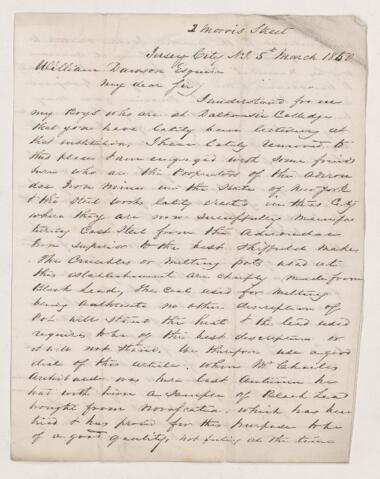 2 Morris Street
Jersey City N.J. 5th March 1850
William Dawson Esquire
My dear Sir
I understand from
my Boys who are at Dalhousie Colledge
that you have lately been lecturing at
that institution, I have lately removed to
this place & am engaged with some friends
here who are the Proprietors of the Adiron
dac Iron Mines in the State of New York
& the Steel works lately erected in this City
where they are now successfully manufac
turing Cast Steel from the Adirondac
Iron superior to the best Sheffield makes
The Crucibles or melting pots used at
this establishment are chiefly made from
Black Lead, the Coal used for melting
being Anthracite no other description of
Pot will stand the heat & the Lead used
requires to be of the best description or
it will not stand. We therefore use a good
deal of this article. When Mr Charles
Archibald was here last Autumn he
had with him a sample of Black Lead
brought from Novascotia, which has been
tried & has proved for this purpose to be
of a good quality, not being at the time